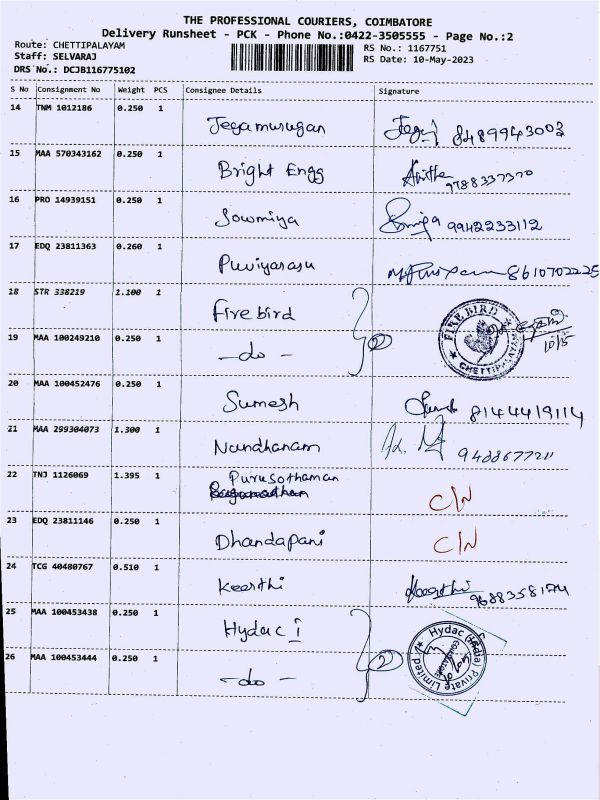 THE PROFESSIONAL COURIERS, COIMBATORE
Delivery Runsheet - PCK - Phone No.:0422-3505555 - Page No.:2
Route: CHETTIPALAYAM RS No.: 1167751
Staff: SELVARAJ RS Date: 10-May-2023
DRS No.: DCJB116775102
S No Consignment No Weight PCS Consignee Details Signature
14 TNM 1012186 0.250 1 Jegamurugan 8489943003
15 MAA 570343162 0.250 1 Bright Engg 9788337370
16 PRO 14939151 0.250 1 Sowmiya 9942233112
17 EDQ 23811363 0.260 1 Puviyarasu 8610702225
18 STR 338219 1.100 1 Fire bird
FIRE BIRD CHETTIPALAYAM 10/5
19 MAA 100249210 0.250 1 -do- 2
20 MAA 100452476 0.250 1 Sumesh 8144419114
21 MAA 299304073 1.300 1 Nandhanam 9488677211
22 TNJ 1126069 1.395 1 Purusothaman C/N
23 EDQ 23811146 0.250 1 Dhandapani C/N
24 TCG 40480767 0.510 1 Keerthi Keerthi
25 MAA 100453438 0.250 1 Hydac I
Hydac (India) Private Limited
26 MAA 100453444 0.250 1 -do- 2